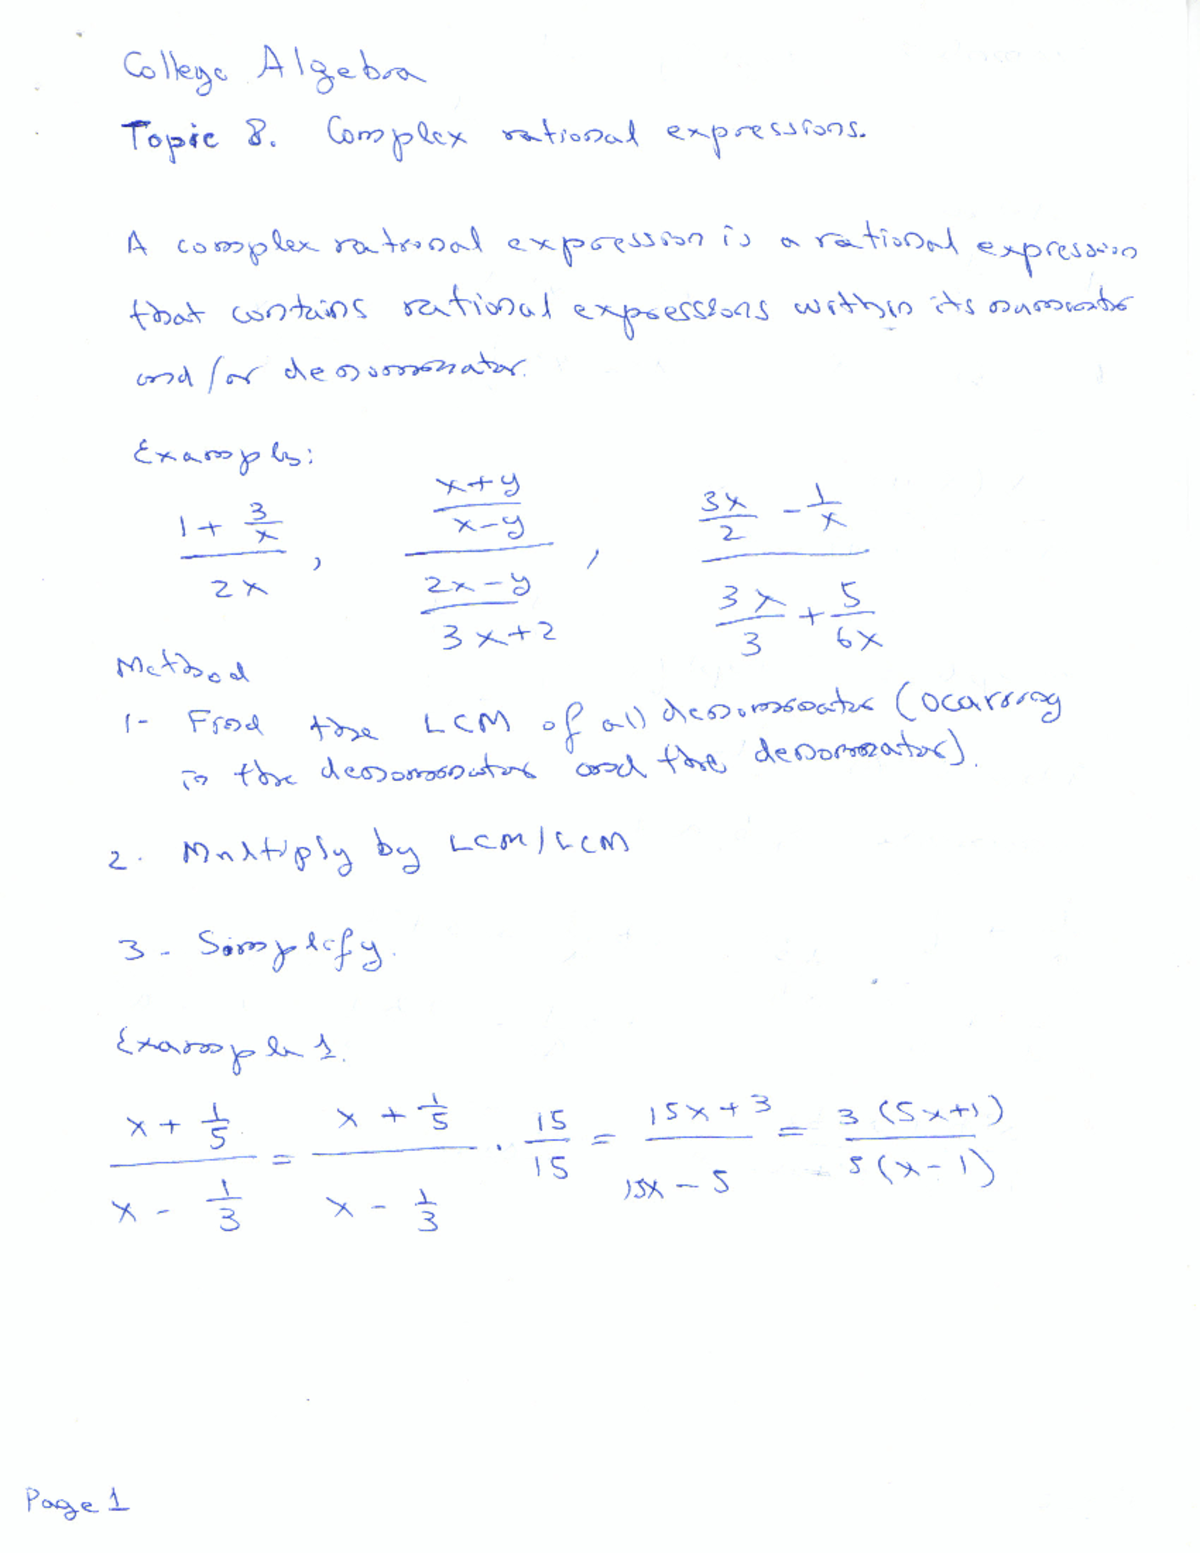 College Algebra
Topic 8. Complex rational expressions.
A complex rational expression is a rational expression
that contains rational expressions within its numerator
and/or denominator.
Examples:
(1 + 3/x) / (2x) , ((x+y)/(x-y)) / ((2x-y)/(3x+2)) , (3x/2 - 1/x) / (3x/3 + 5/6x)
Method
1- Find the LCM of all denominator (ocurring
in the denominator and the denominator).
2. Multiply by LCM/LCM
3- Simplify.
Example 1.
(x + 1/5) / (x - 1/3) = (x + 1/5) / (x - 1/3) · 15/15 = (15x + 3) / (15x - 5) = 3(5x+1) / 5(x-1)
Page 1